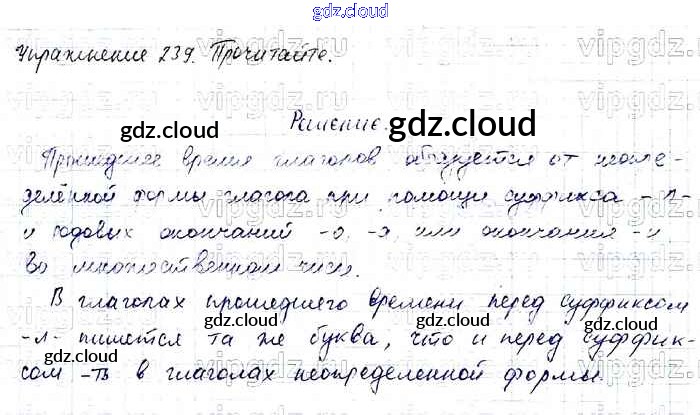 gdz.cloud
Упражнение 239. Прочитайте.
Решение.
Прошедшее время глаголов образуется от неопре-
делённой формы глагола при помощи суффикса -л-
и родовых окончаний -о, -а, или окончания -и
во множественном числе.
В глаголах прошедшего времени перед суффиксом
-л- пишется та же буква, что и перед суффик-
сом -ть в глаголах неопределенной формы.